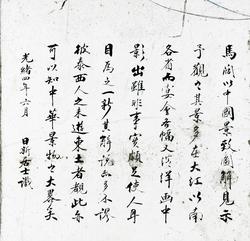 馬以中國景致圖解見示
予觀之其景多在大江以南
各省而宴會各幅又從洋画中
影出雖非事實頗足使人耳
目為之一新其解說亦多不謬
彼泰西人之未遊東土者觀此亦
可以知中華景物之大畧矣
光緒四年六月 日新居士識